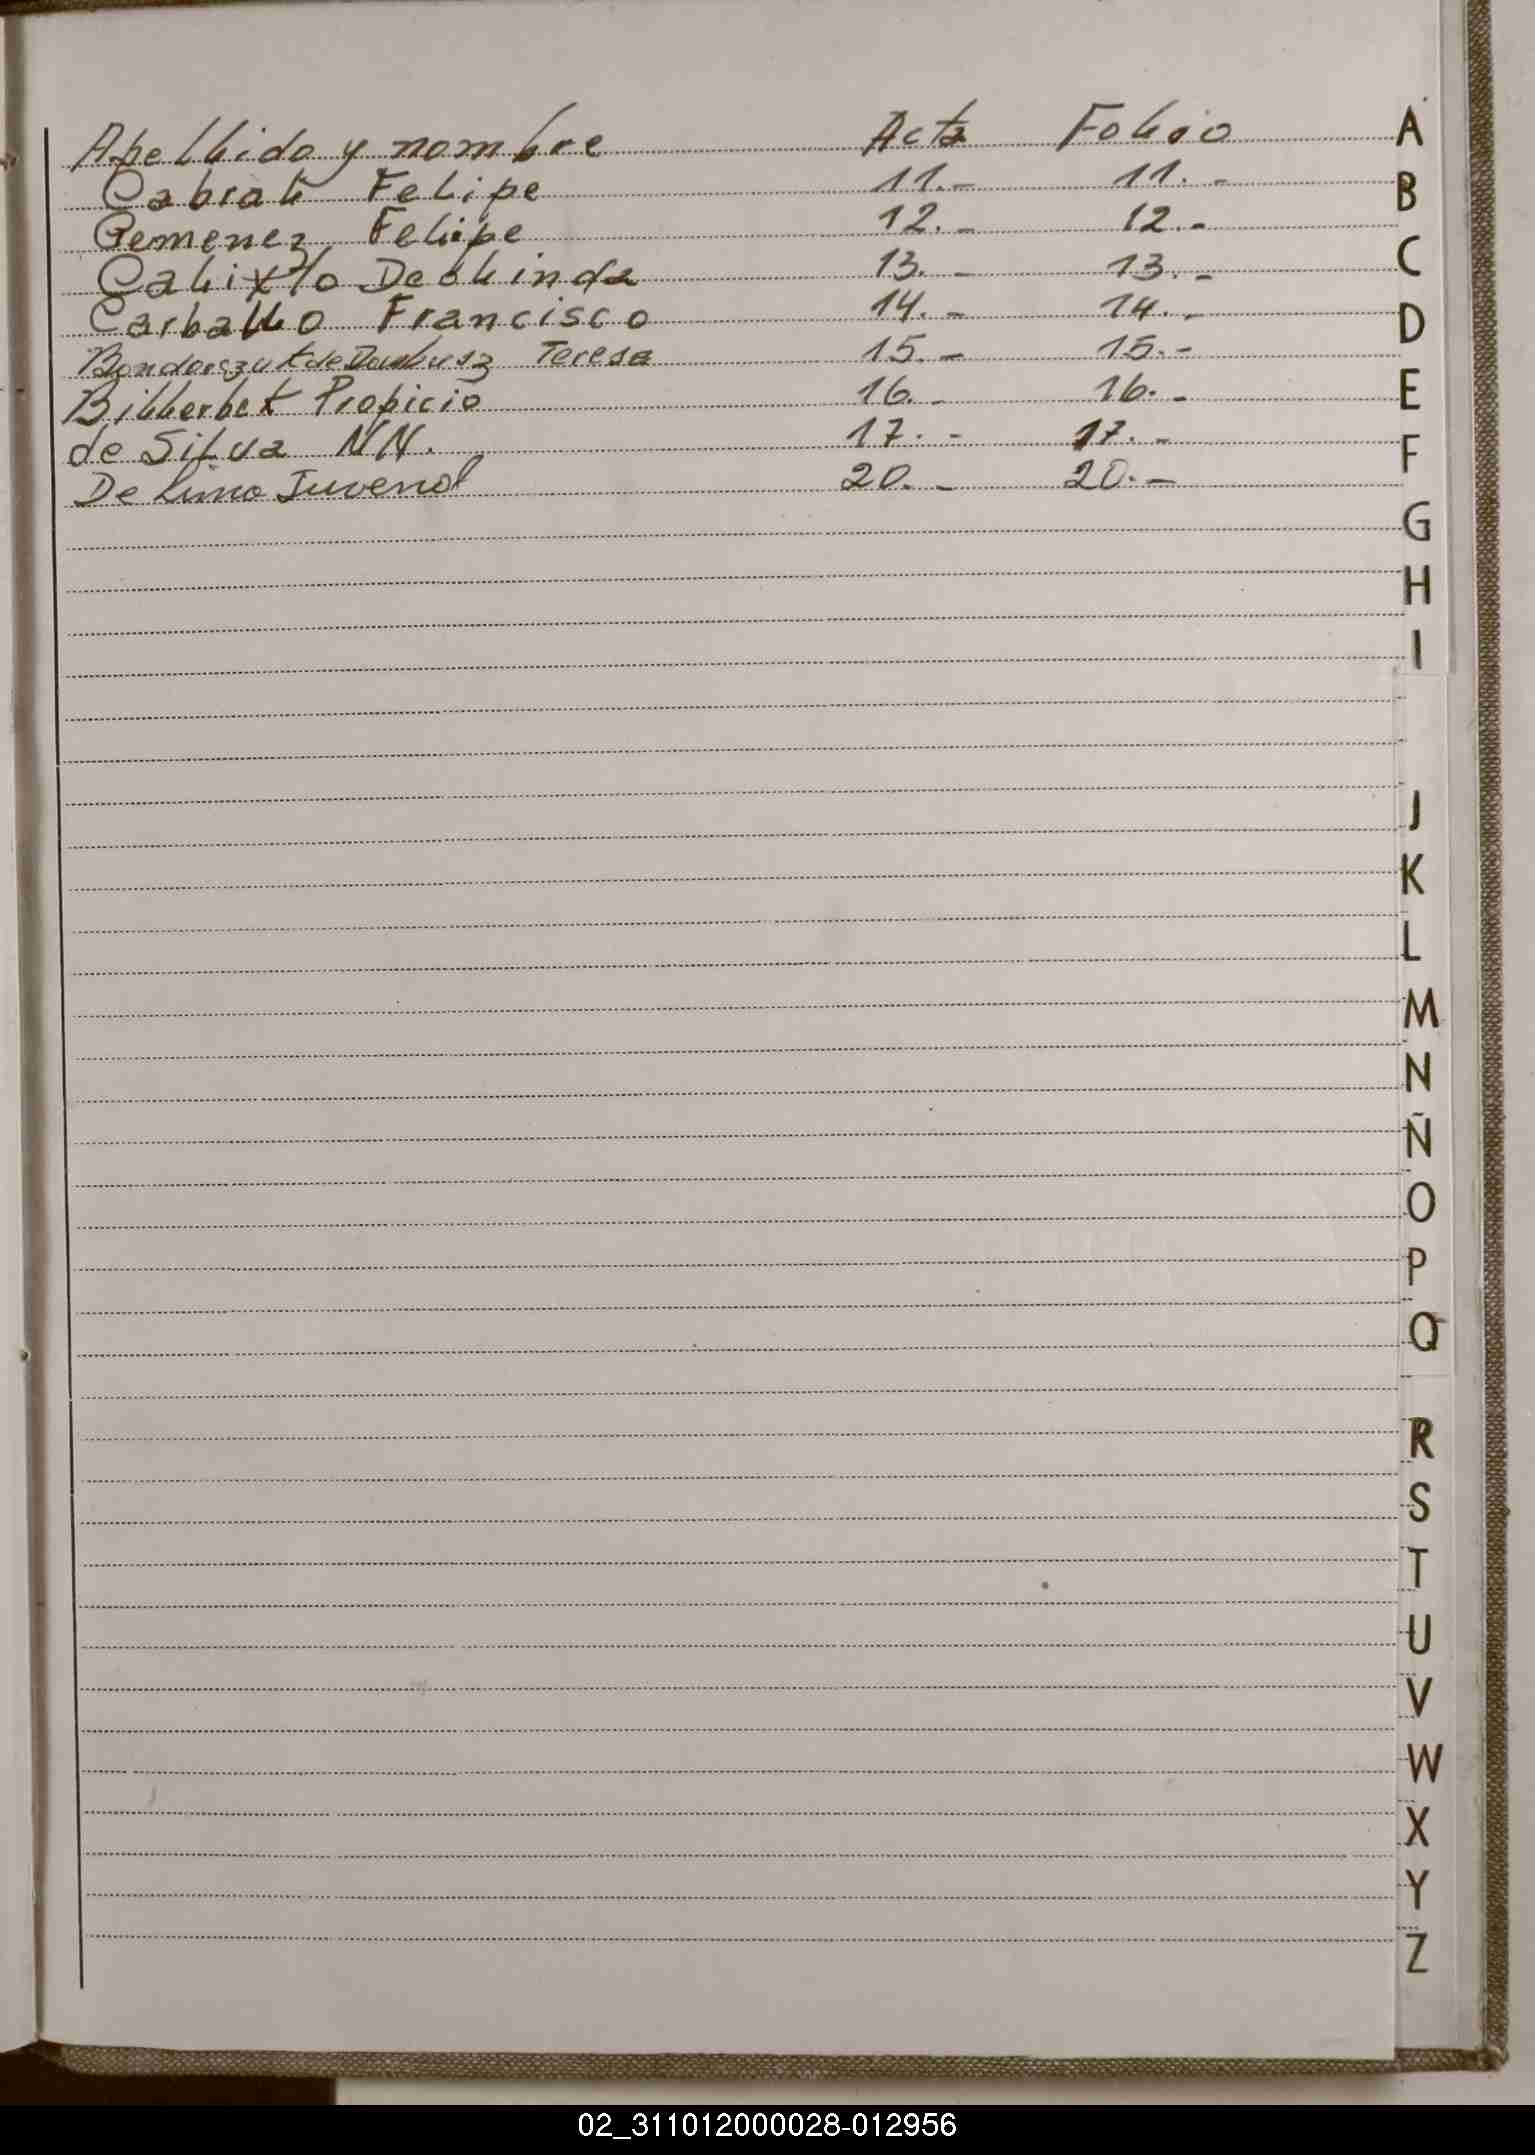 Apellido y nombre Acta Folio
Cabral Felipe 11.- 11.-
Gemenez Felipe 12.- 12.-
Calixto Deolinda 13.- 13.-
Carballo Francisco 14.- 14.-
de Teresa 15.- 15.-
Billerbek Propicio 16.- 16.-
de Silva NN. 17.- 17.-
De Lima Juvenal 20.- 20.-
A
B
C
D
E
F
G
H
I
J
K
L
M
N
Ñ
O
P
Q
R
S
T
U
V
W
X
Y
Z
02_311012000028-012956